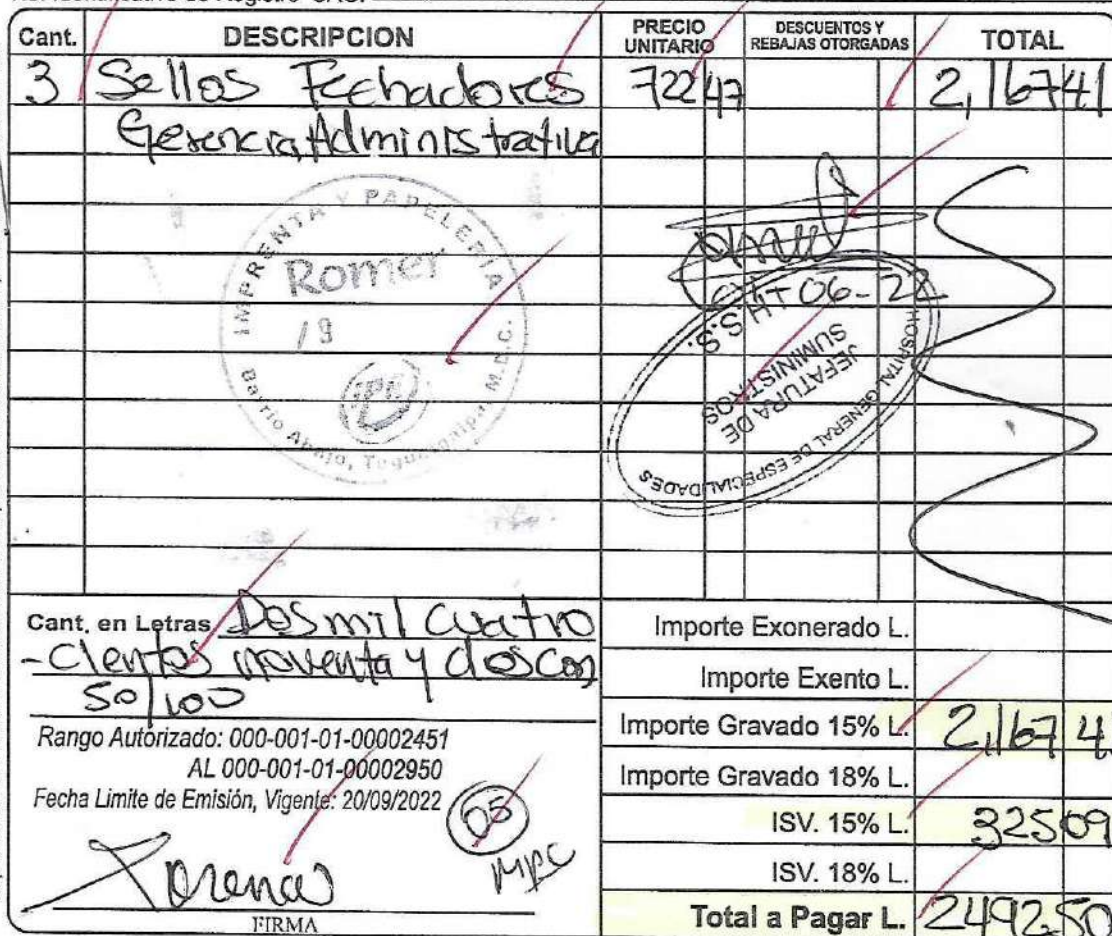 Cant. DESCRIPCION PRECIO UNITARIO DESCUENTOS Y REBAJAS OTORGADAS TOTAL
3 Sellos Fechadores 722 47 2,167 41
Gerencia Administrativa
IMPRENTA Y PAPELERIA
Romer
Barrio Abajo, Tegucigalpa, M.D.C.
06-22
HOSPITAL GENERAL DE ESPECIALIDADES
JEFATURA DE
SUMINISTROS
Cant. en Letras Dos mil cuatro
-cientos noventa y dos con
50/100
Rango Autorizado: 000-001-01-00002451
AL 000-001-01-00002950
Fecha Limite de Emisión, Vigente: 20/09/2022
05
MPC
Lorena
FIRMA
Importe Exonerado L.
Importe Exento L.
Importe Gravado 15% L. 2,167 4
Importe Gravado 18% L.
ISV. 15% L. 325 09
ISV. 18% L.
Total a Pagar L. 2492.50